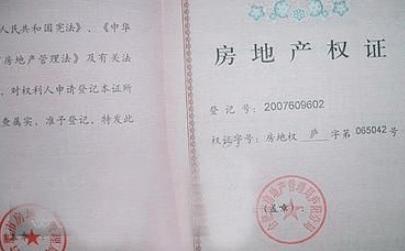 人民共和国宪法》、《中华
房地产管理法》及有关法
，对权利人申请登记本证所
查属实，准予登记，特发此
房地产权证
登记号：2007609602
权证字号：房地权 字第065042号
（盖章）